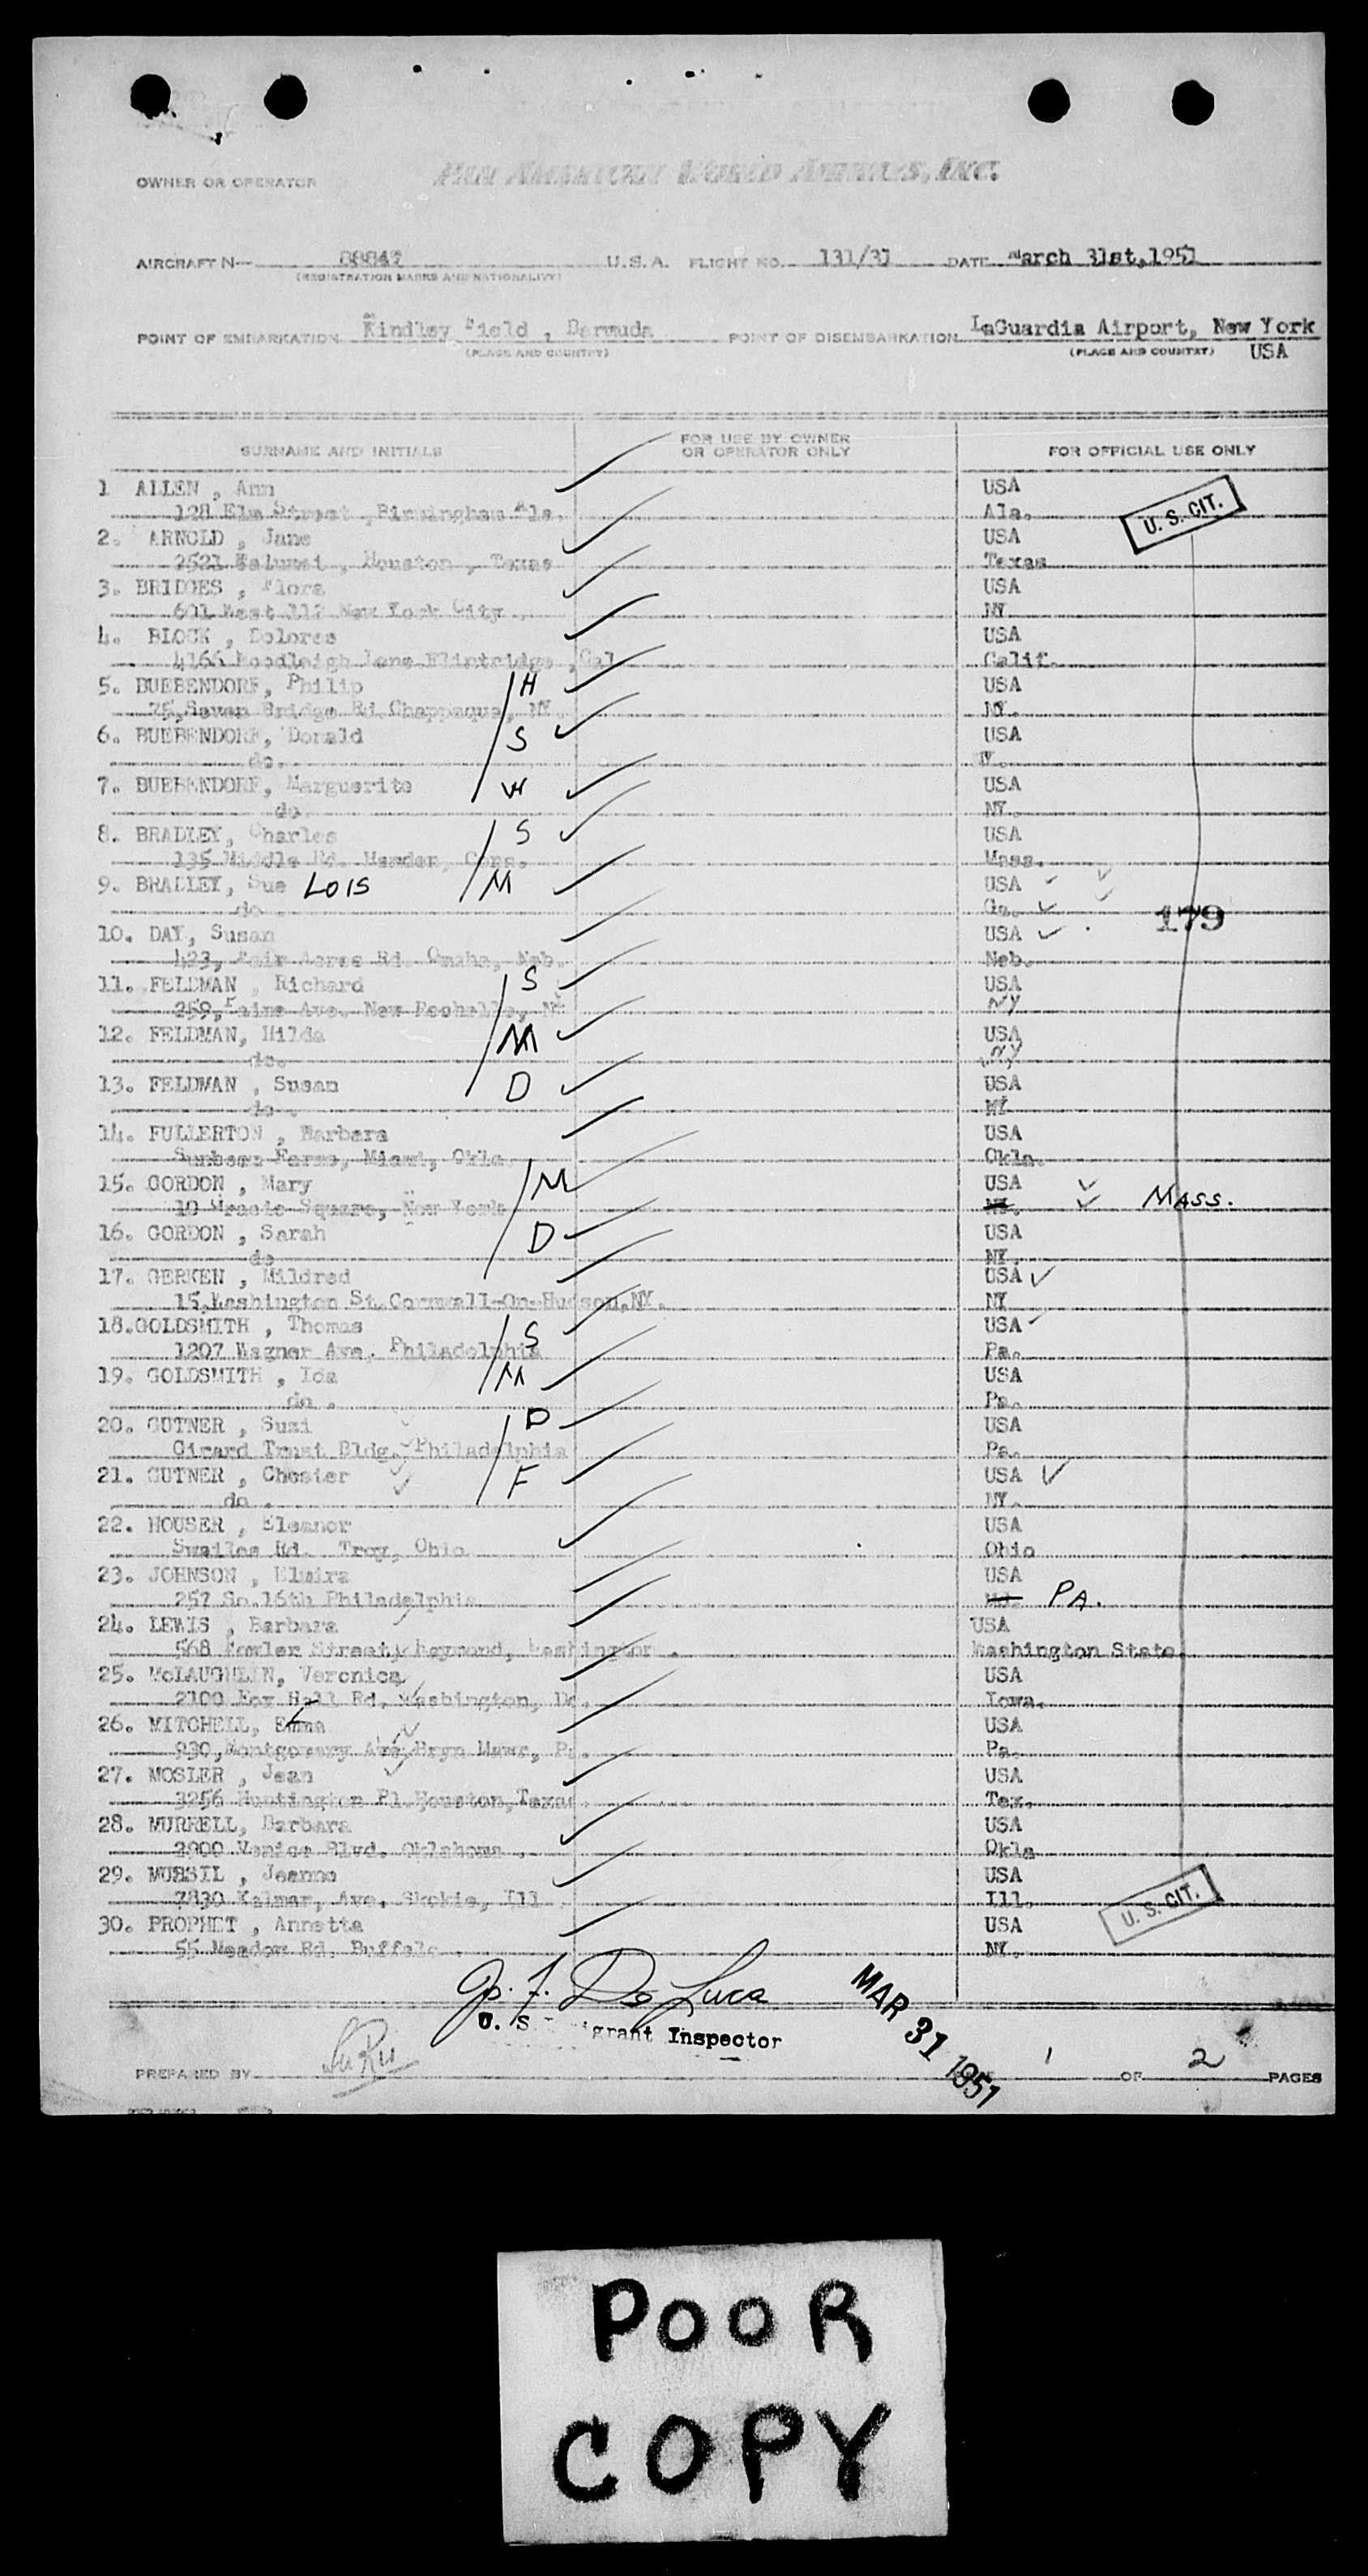 OWNER OR OPERATOR PAN AMERICAN WORLD AIRWAYS, INC.
AIRCRAFT N— 88847 U.S.A. FLIGHT NO. 131/31 DATE March 31st,1951
(REGISTRATION MARKS AND NATIONALITY)
POINT OF EMBARKATION Kindley Field , Bermuda POINT OF DISEMBARKATION LaGuardia Airport, New York
(PLACE AND COUNTRY) (PLACE AND COUNTRY) USA
SURNAME AND INITIALS FOR USE BY OWNER OR OPERATOR ONLY FOR OFFICIAL USE ONLY
1 ALLEN , Ann USA
128 Elm Street ,Birmingham Ala. Ala. U. S. CIT.
2. ARNOLD , Jane USA
2521 , Houston , Texas Texas
3. BRIDGES , Flora USA
601 West 112 New York City . NY
4. BLOCK , Dolores USA
4166 Woodleigh Lane Flintridge ,Cal Calif.
5. BUEBENDORF, Philip H USA
75,Seven Bridge Rd.Chappaqua, NY. NY.
6. BUEBENDORF, Donald S USA
do.
7. BUEBENDORF, Marguerite W USA
do NY.
8. BRADLEY, Charles S USA
135 Middle Rd. Hamden, Conn. Mass.
9. BRADLEY, Sue LOIS M USA
do . Ga. 179
10. DAY, Susan USA
423, Fair Acres Rd. Omaha, Neb. Neb.
11. FELDMAN , Richard S USA
259, Paine Ave. New Rochelle, NY NY
12. FELDMAN, Hilda M USA
do. NY
13. FELDMAN , Susan D USA
do . NY
14. FULLERTON , Barbara USA
Sunbeam Farms, Miami, Okla. Okla.
15. GORDON , Mary M USA
10 Gracie Square, New York NY. MASS.
16. GORDON , Sarah D USA
do NY.
17. GERKEN , Mildred USA
15,Washington St.Cornwall-On-Hudson,NY. NY
18.GOLDSMITH , Thomas S USA
1207 Wagner Ave. Philadelphia Pa.
19. GOLDSMITH , Ida M USA
do . Pa.
20. GUTNER , Suzi D USA
Girard Trust Bldg. Philadelphia Pa.
21. GUTNER , Chester F USA
do . NY.
22. HOUSER , Eleanor USA
Swailes Rd. Troy, Ohio Ohio
23. JOHNSON , Elmira USA
257 So.16th Philadelphia PA.
24. LEWIS , Barbara USA
568 Fowler Street, Raymond, Washington . Washington State
25. McLAUGHLIN, Veronica USA
2100 Fox Hall Rd. Washington, Dc. Iowa.
26. MITCHELL, Emma USA
930,Montgomery Ave,Bryn Mawr, Pa. Pa.
27. MOSLER , Jean USA
3256 Huntington Pl.Houston,Texas. Tex.
28. MURRELL, Barbara USA
2900 Venice Blvd. Oklahoma . Okla
29. MURSIL , Jeanne USA
7830 Kalmar, Ave. Skokie, Ill. Ill. U. S. CIT.
30. PROPHET , Annette USA
55 Meadow Rd. Buffalo . NY.
Jo. F. De Luca
U. S. Immigrant Inspector
MAR 31 1951
PREPARED BY 1 OF 2 PAGES
POOR
COPY